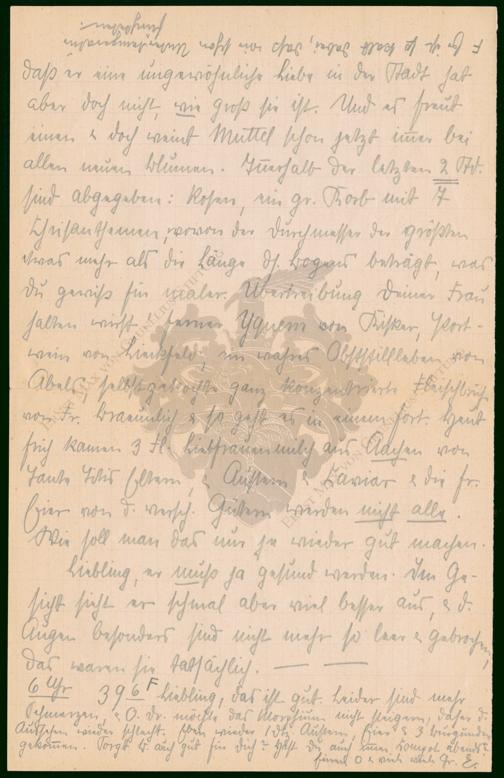 daß er eine ungewöhnliche Liebe in der Stadt hat
aber doch nicht, wie groß sie ist. Und es freut
einen & doch weint Muttel schon jetzt immer bei
allen neuen Blumen. Innerhalb der letzten 2 Std.
sind abgegeben: Rosen, ein gr. Korb mit 7
Chrisanthemen, wovon der Durchmesser der größten
etwas mehr als die Länge ds. Bogens beträgt, was
Du gewiß für Übertreibung Deiner Frau
halten wirst. Ferner Yquem von Port-
wein von ein wahres Obststillleben von
Abels, selbstgekochte ganz konzentrierte Fleischbrühe
von Fr. Braeunlich & so geht es in einem fort. Heut
früh kamen 3 Fl. Liebfrauenmilch aus Aachen von
Tante Eltern, & Austern & Kaviar & die fr.
Eier von d. versch. Gütern werden nicht alle.
Wie soll man das nur je wieder gut machen.
Liebling, er muß ja gesund werden. Im Ge-
sicht sieht er schmal aber viel besser aus, & d.
Augen besonders sind nicht mehr so leer & gebrochen,
das waren sie tatsächlich. — —
6 Uhr 396 Liebling, das ist gut. Leider sind mehr
Schmerzen, & O. Dr. möchte das Morphium nicht steigern, daher d.
Aussehen wieder schlecht. Eben wieder 1 Dtz. Austern, Eier & 3 Burgunder
gekommen. Sorgst D. auch gut für Dich? Hast Du auch immer Kompot abends?
& viele viele Gr. E.